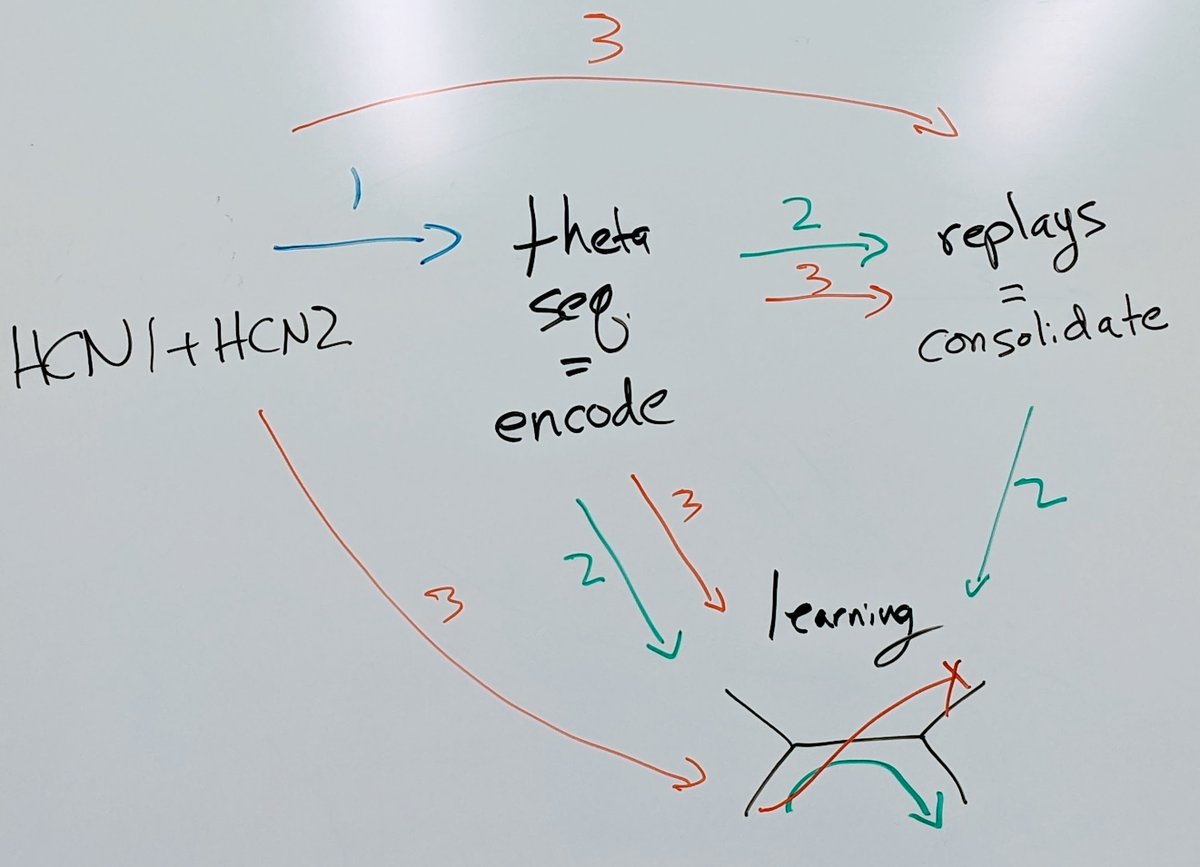 3
1
theta
seq.
=
encode
2
3
replays
=
consolidate
HCN1+HCN2
3
2
3
2
learning